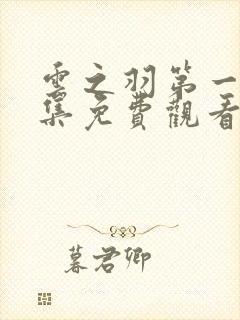 雲之羽第一
集免費觀看
暮君卿